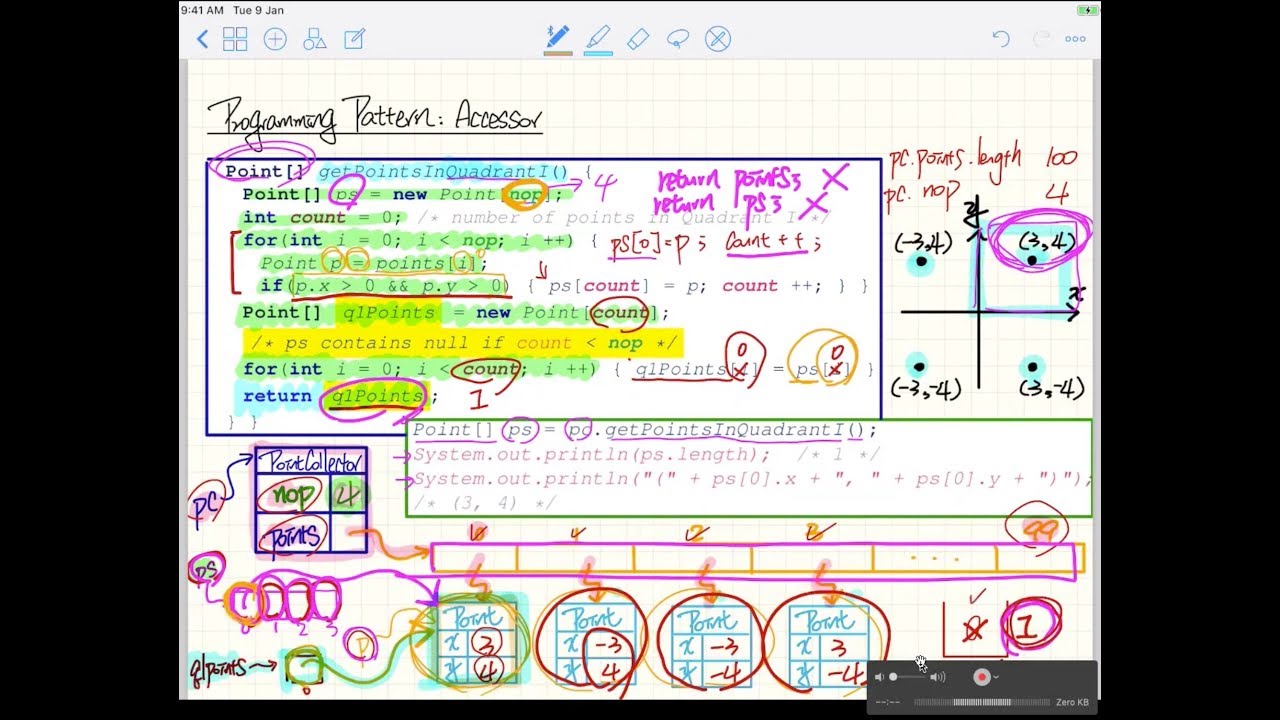 9:41 AM Tue 9 Jan
Programming Pattern: Accessor
Point[] getPointsInQuadrantI() {
Point[] ps = new Point[nop]; → 4
return points; X
return ps; X
int count = 0; /* number of points in Quadrant I */
for(int i = 0; i < nop; i ++) { ps[0] = p; count ++;
Point p = points[i]; 0
if(p.x > 0 && p.y > 0) { ps[count] = p; count ++; } }
Point[] q1Points = new Point[count];
/* ps contains null if count < nop */
0 0
for(int i = 0; i < count; i ++) { q1Points[i] = ps[i] }
return q1Points; 1
} }
pc.points.length 100
pc.nop 4
y
(-3,4) (3,4)
x
(-3,-4) (3,-4)
Point[] ps = pc.getPointsInQuadrantI();
System.out.println(ps.length); /* 1 */
System.out.println("(" + ps[0].x + ", " + ps[0].y + ")");
/* (3, 4) */
PointCollector
pc nop 4
points
0 1 2 3 99
...
ps
0 1 2 3
p
Point Point Point Point
x 3 x -3 x -3 x 3
y 4 y 4 y -4 y -4
1
q1Points →
0
Zero KB